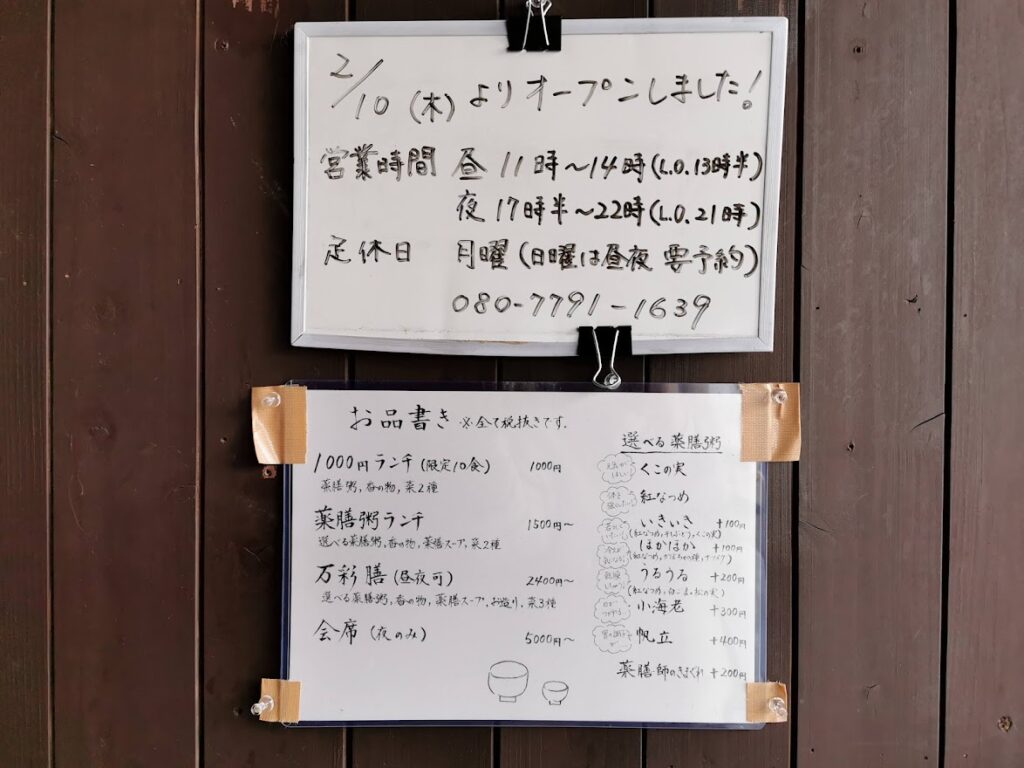 2/10(木)よりオープンしました!
営業時間 昼 11時~14時(L.O.13時半)
夜 17時半~22時(L.O.21時)
定休日 月曜(日曜は昼夜 要予約)
080-7791-1639
お品書き ※全て税抜きです.
1000円ランチ(限定10食) 1000円
薬膳粥,香の物,菜2種
薬膳粥ランチ 1500円~
選べる薬膳粥,香の物,薬膳スープ,菜2種
万彩膳(昼夜可) 2400円~
選べる薬膳粥,香の物,薬膳スープ,お造り,菜3種
会席(夜のみ) 5000円~
選べる薬膳粥
くこの実
紅なつめ
いきいき +100円
(紅なつめ,干しぶどう,くこの実)
ほかほか +100円
(紅なつめ,かぼちゃの種,
うるうる +200円
(紅なつめ,白ごま,松の実)
小海老 +300円
帆立 +400円
薬膳師のきまぐれ +200円